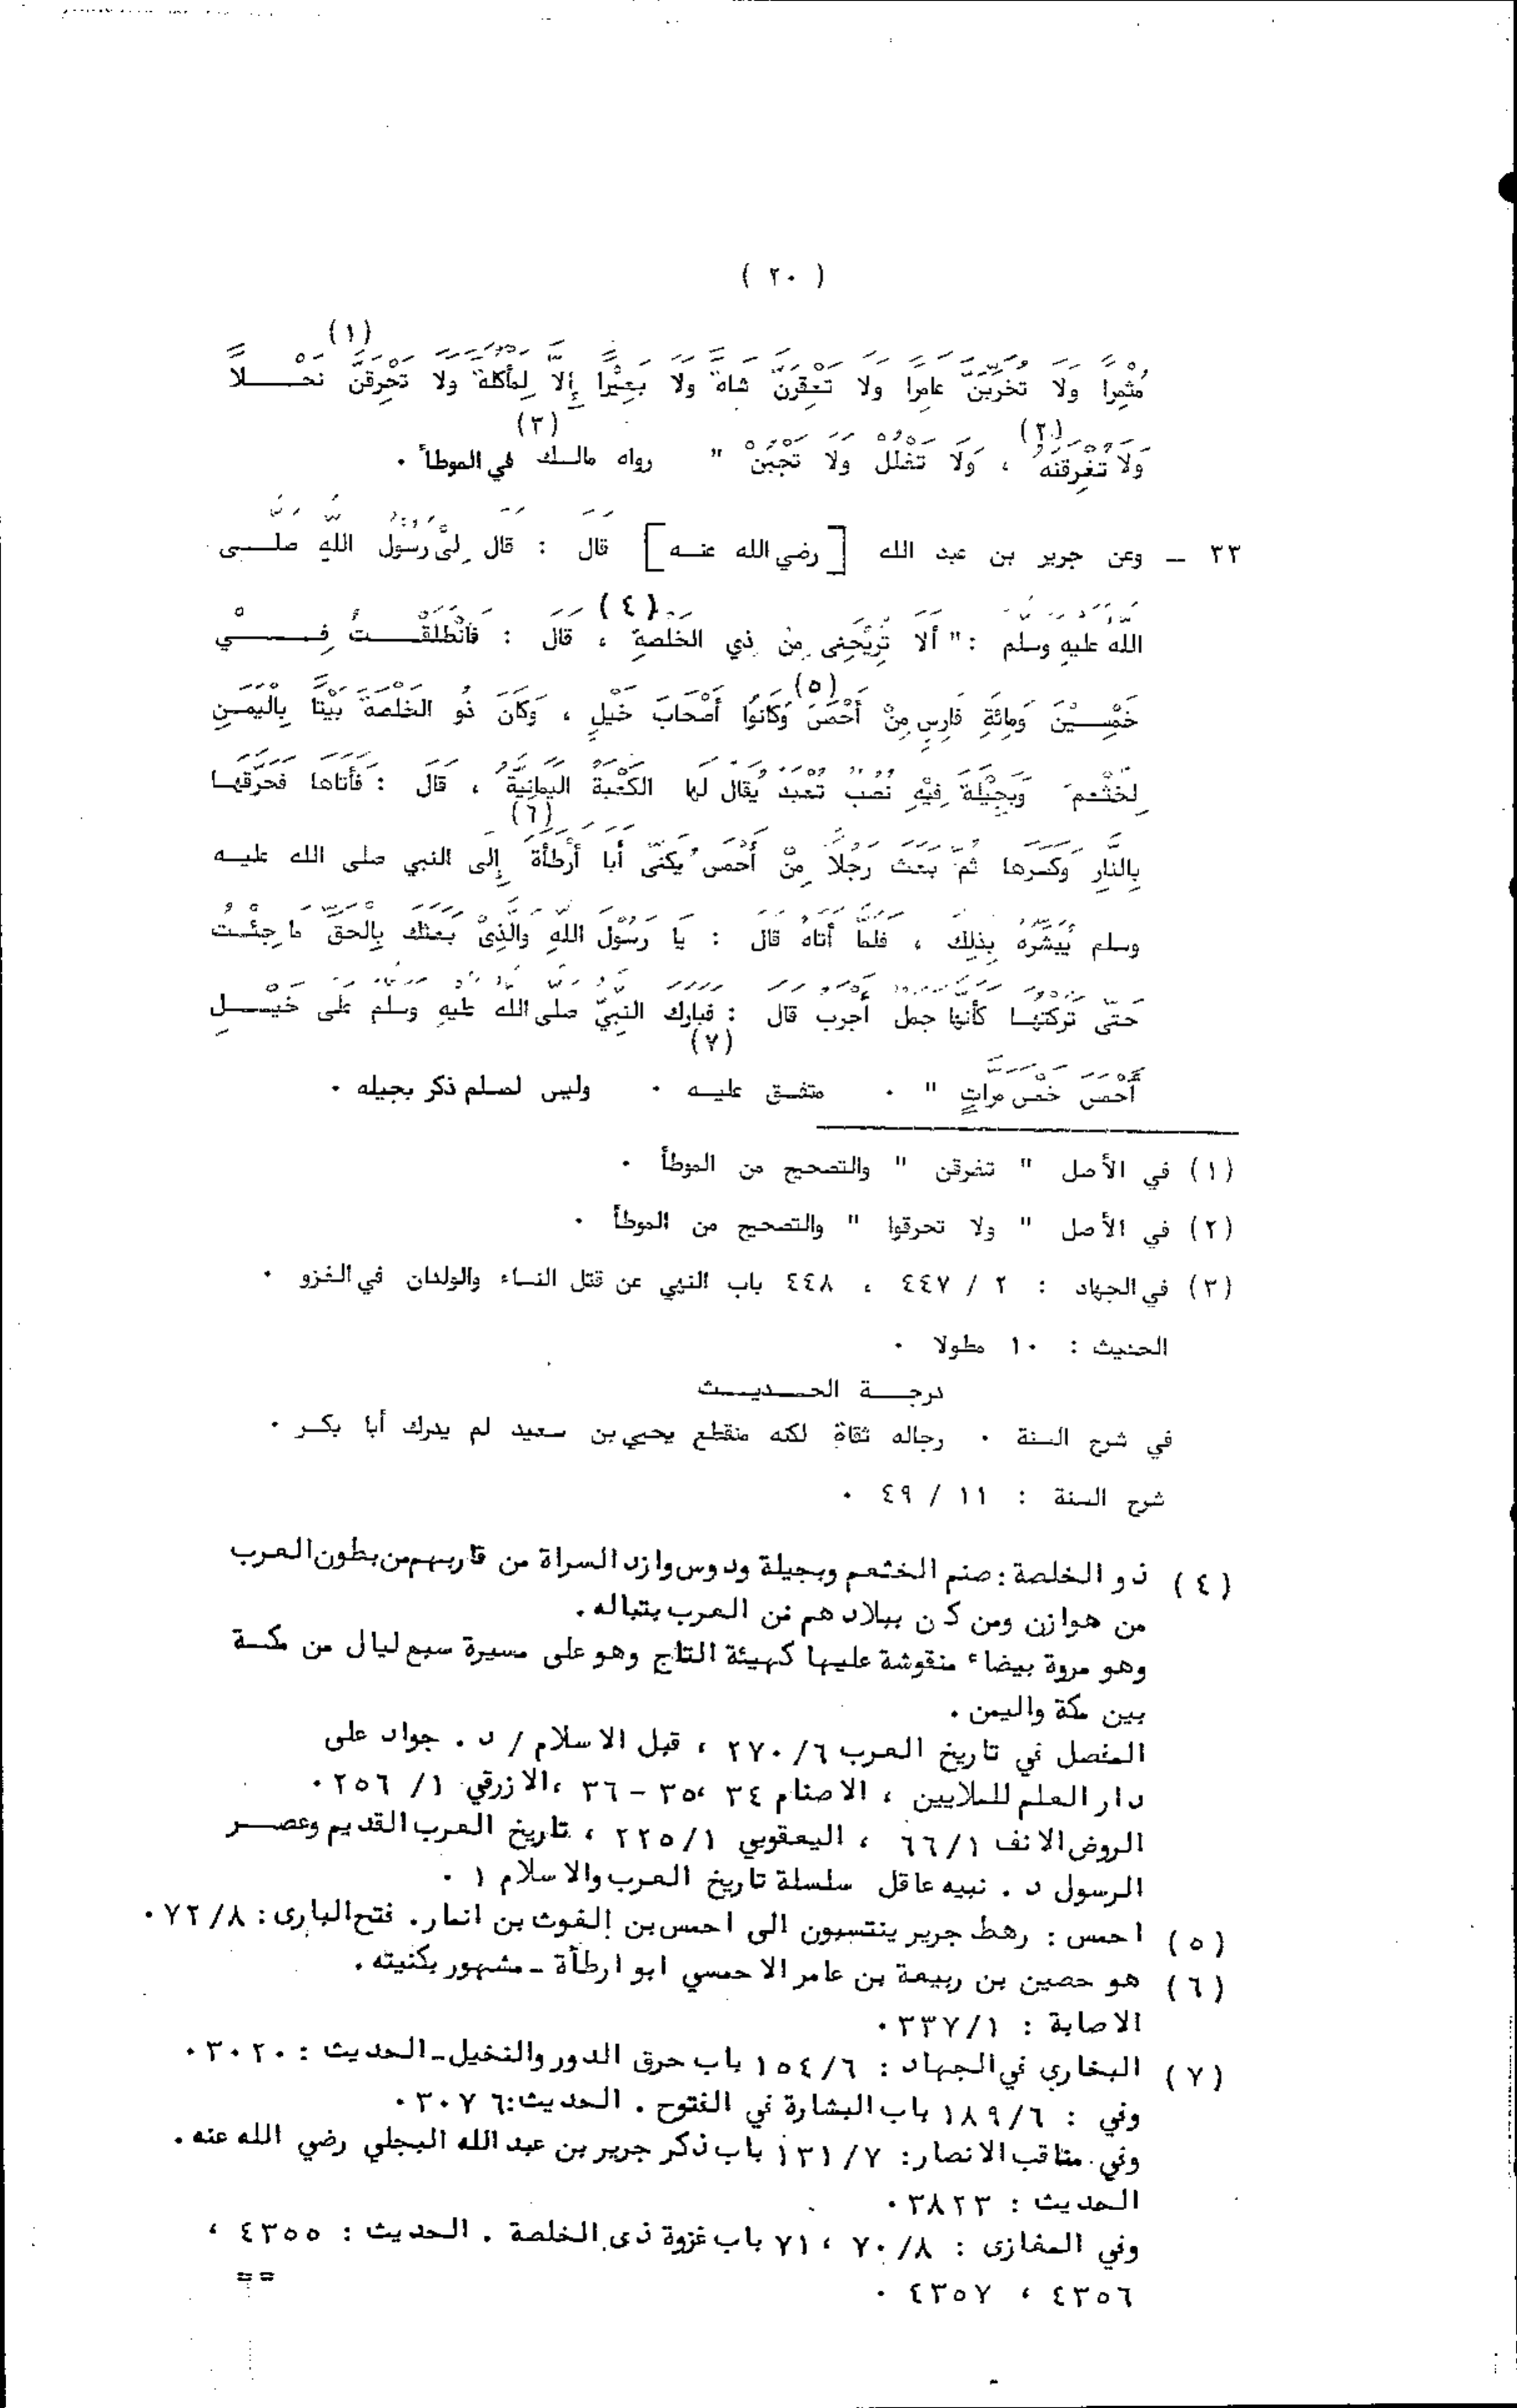 ( ٢٠ )
(١)
مُثْمِراً وَلَا تُخَرِّبَنَّ عَامِراً وَلَا تَعْقِرَنَّ شَاةً وَلَا بَعِيْراً إِلَّا لِمَأْكَلَةٍ وَلَا تَحْرِقَنَّ نَحْلاً
(٢) (٣)
وَلَا تُغَرِقَنَّهُ ، وَلَا تَغْلُلْ وَلَا تَجْبُنْ " رواه مالك في الموطأ .
٣٣ ـ وعن جرير بن عبد الله [ رضي الله عنه ] قَالَ : قَالَ لِيْ رَسُولُ اللَّهِ صلى
(٤)
اللَّهُ عَلَيهِ وسلم : " أَلَا تُرِيْحُنِى مِنْ ذِي الخَلَصَةِ ، قَالَ : فَانْطَلَقْتُ فِيْ
(٥)
خَمْسِيْنَ وَمِائَةِ فَارِسٍ مِنْ أَحْمَسَ وَكَانُوا أَصْحَابَ خَيْلٍ ، وَكَانَ ذُو الخَلَصَةَ بَيْتاً بِالْيَمَنِ
لِخَثْعَمَ وَبَجِيْلَةَ فِيْهِ نُصُبٌ تُعْبَدُ يُقَالُ لَهَا الكَعْبَةُ اليَمَانِيَّةُ ، قَالَ : فَأَتَاهَا فَحَرَّقَهَا
(٦)
بِالنَّارِ وَكَسَرَهَا ثُمَّ بَعَثَ رَجُلاً مِنْ أَحْمَسَ يُكَنَّى أَبَا أَرْطَأَةَ إِلَى النبي صلى الله عليه
وسلم يُبَشِّرُهُ بِذَلِكَ ، فَلَمَّا أَتَاهُ قَالَ : يَا رَسُوْلَ اللَّهِ وَالَّذِىْ بَعَثَكَ بِالْحَقِّ مَا جِئْتُ
حَتَّى تَرَكْتُهَا كَأَنَّهَا جَمَلٌ أَجْرَبُ قَالَ : فَبَارَكَ النَّبِيُّ صَلَّى اللَّهُ عَلَيْهِ وَسَلَّمَ عَلَى خَيْلِ
(٧)
أَحْمَسَ خَمْسَ مَرَّاتٍ " . متفق عليه . وليس لمسلم ذكر بجيله .
(١) في الأصل " تغرقن " والتصحيح من الموطأ .
(٢) في الأصل " ولا تحرقوا " والتصحيح من الموطأ .
(٣) في الجهاد : ٢ / ٤٤٧ ، ٤٤٨ باب النهي عن قتل النساء والولدان في الغزو .
الحديث : ١٠ مطولا .
درجة الحديث
في شرح السنة . رجاله ثقاة لكنه منقطع يحيي بن سعيد لم يدرك أبا بكر .
شرح السنة : ١١ / ٤٩ .
(٤) ذو الخلصة : صنم الخثعم وبجيلة ودوس وازد السراة من قاربهم من بطون العرب
من هوازن ومن كان ببلادهم من العرب بتباله .
وهو مروة بيضاء منقوشة عليها كهيئة التاج وهو على مسيرة سبع ليال من مكة
بين مكة واليمن .
المفصل في تاريخ العرب ٢٧٠/٦ ، قبل الاسلام / د . جواد على
دار العلم للملايين ، الاصنام ٣٤ ،٣٥ - ٣٦ ،الازرقي ١/ ٢٥٦ .
الروض الانف ٦٦/١ ، اليعقوبي ٢٢٥/١ ، تاريخ العرب القديم وعصر
الرسول د . نبيه عاقل سلسلة تاريخ العرب والاسلام ١ .
(٥) احمس : رهط جرير ينتسبون الى احمس بن الغوث بن انمار . فتح البارى : ٧٢/٨ .
(٦) هو حصين بن ربيعة بن عامر الاحمسي ابو ارطأة ـ مشهور بكنيته .
الاصابة : ٣٣٧/١ .
(٧) البخاري في الجهاد : ١٥٤/٦ باب حرق الدور والنخيل ـ الحديث : ٣٠٢٠ .
وفي : ١٨٩/٦ باب البشارة في الفتوح . الحديث : ٣٠٧٦ .
وفي مناقب الانصار : ١٣١/٧ باب ذكر جرير بن عبد الله البجلي رضي الله عنه .
الحديث : ٣٨٢٣ .
وفي المغازى : ٧٠/٨ ، ٧١ باب غزوة ذى الخلصة . الحديث : ٤٣٥٥ ،
٤٣٥٦ ، ٤٣٥٧ .
==